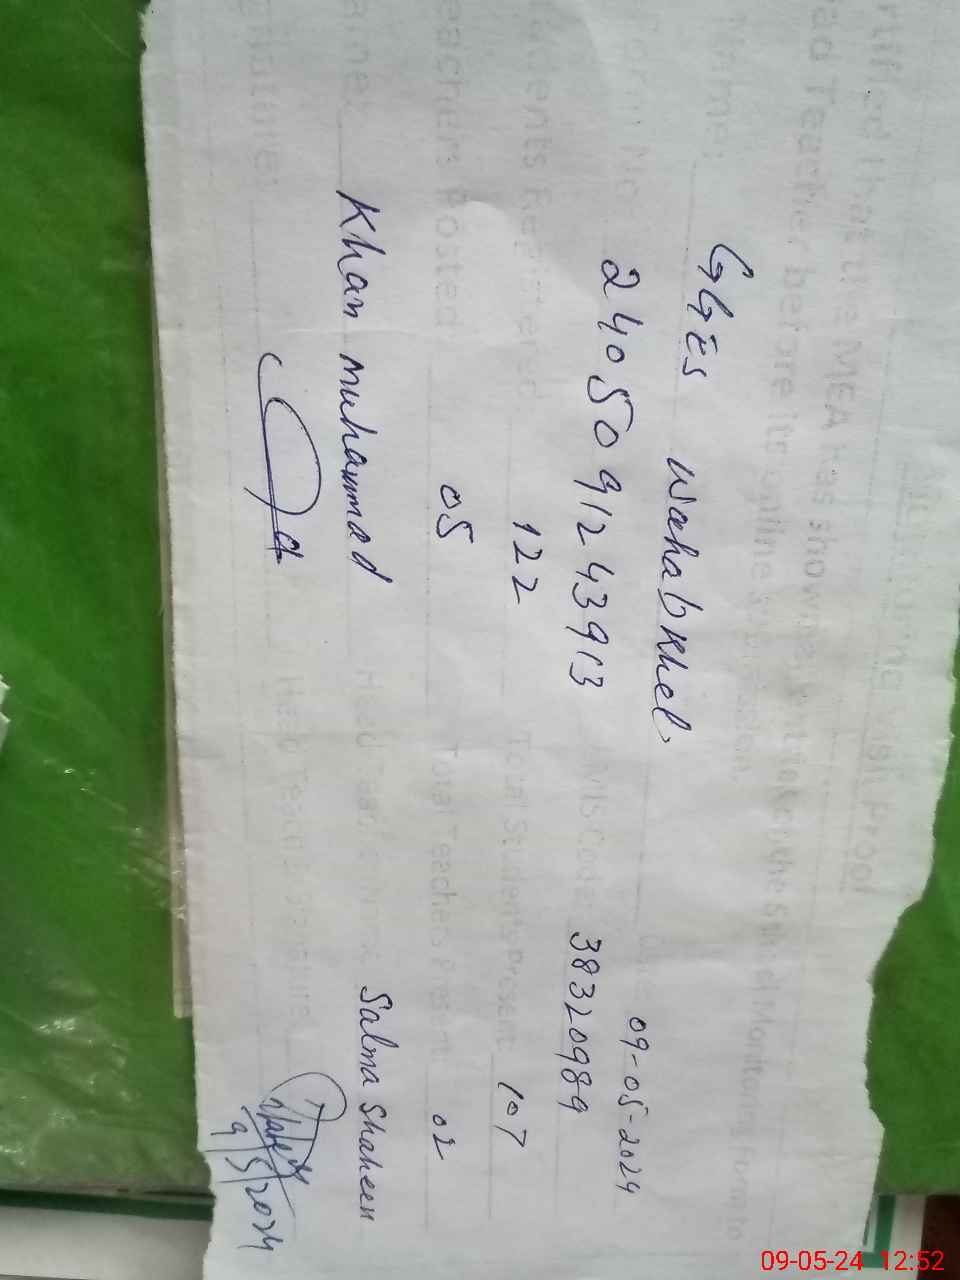 Visit Proof
that the MEA has shown the School Monitoring Form to
Teacher before its online submission.
GGES Wahab Khel. 09-05-2024
24050912 43913 EMIS Code: 38320989
Registered 122 Total Students Present 107
Posted 05 Total Teachers Present 02
Khan muhammad Head Teacher Name Salma Shaheen
Head Teacher Signature
9/5/2024
09-05-24 12:52